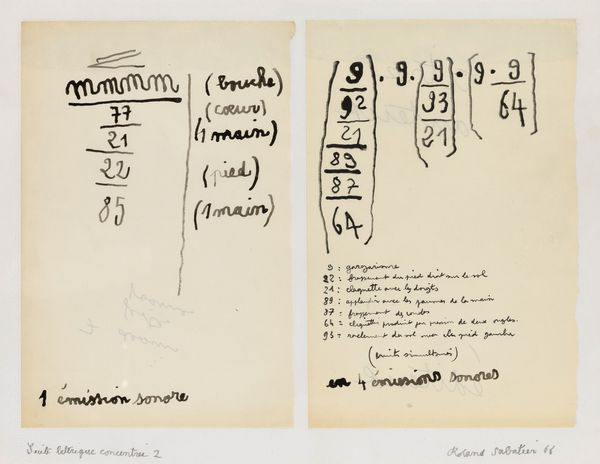 mmmm (bouche)
77 (cœur)
21 (1 main)
22 (pied)
85 (1 main)
1 émission sonore
9 . 9 . 9 . 9 . 9
92 93 64
21 21
89
87
64
9 : gargarisme
22 : frappement du pied droit sur le sol
21 : claquette avec les doigts
89 : applaudir avec les paumes de la main
87 : frappement des coudes
64 : cliquettis produit par pression de deux ongles.
93 : raclement du sol avec le pied gauche
(bruits simultanés)
en 4 émissions sonores
Suite lettrique concentrée 2
Roland Sabatier 66